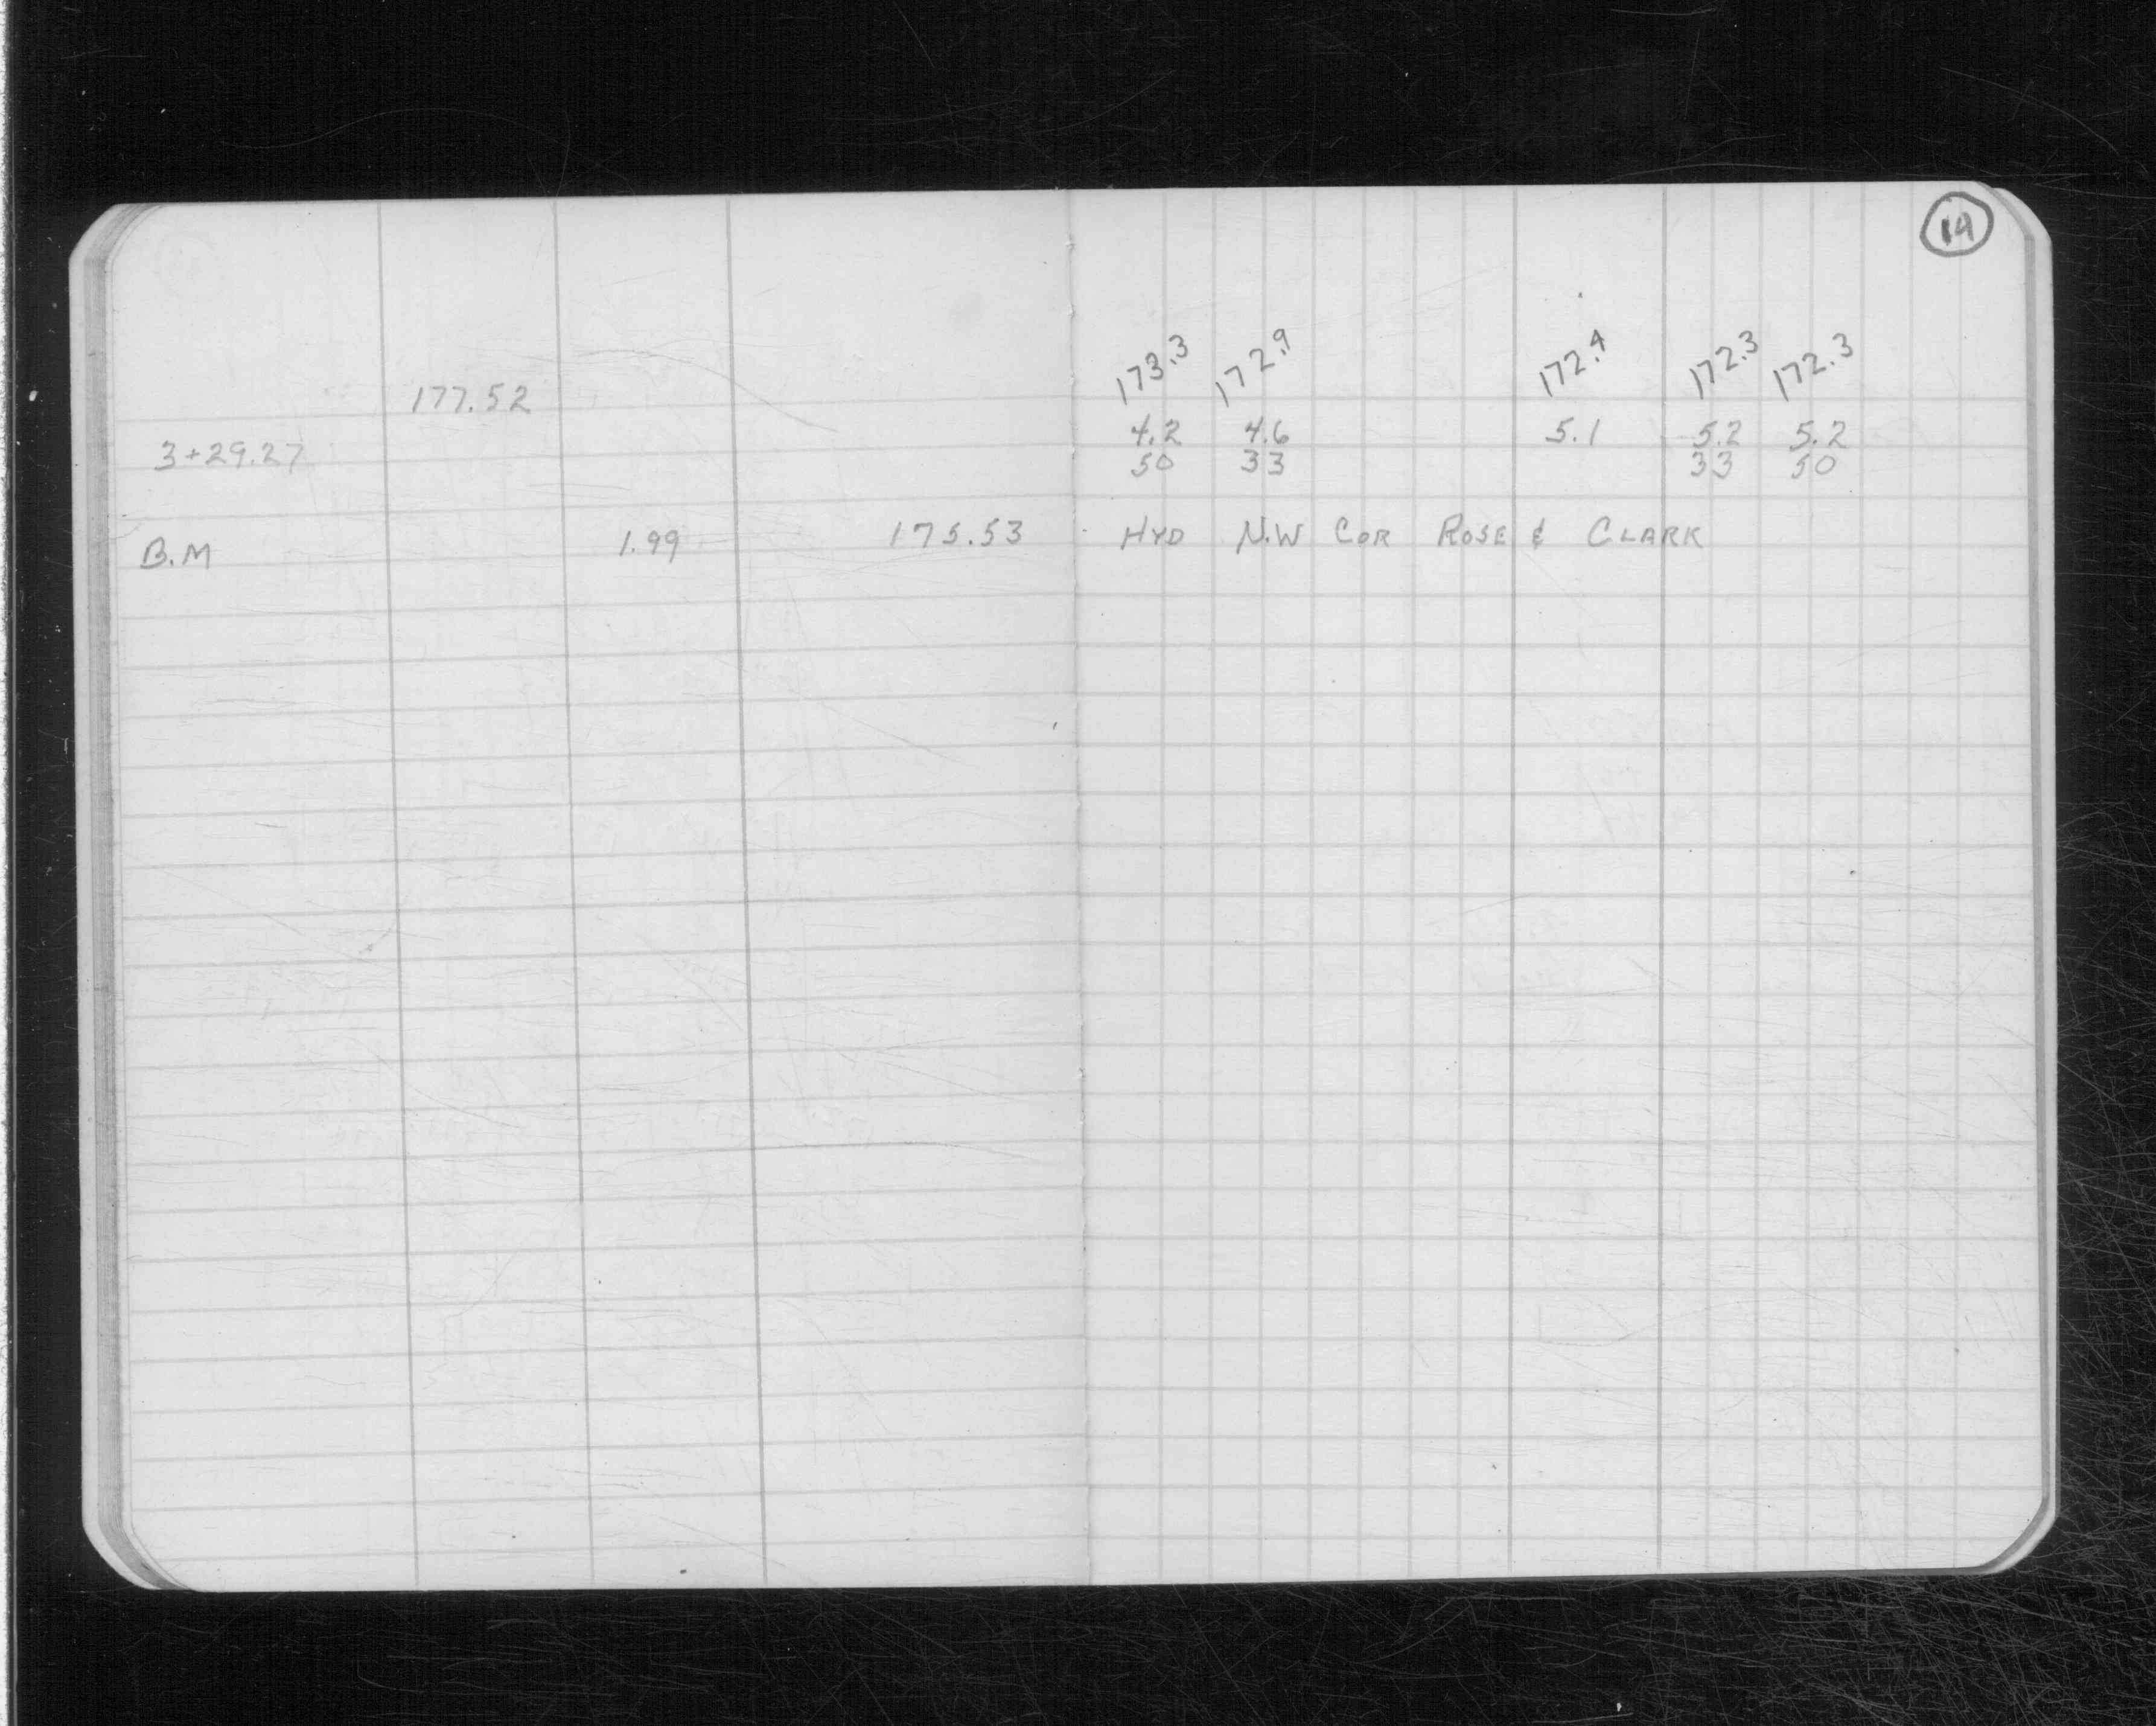 19
173.3 172.9 172.4 172.3 172.3
177.52
4.2 4.6 5.1 5.2 5.2
3+29.27 50 33 33 50
B.M 1.99 175.53 HYD N.W COR ROSE & CLARK